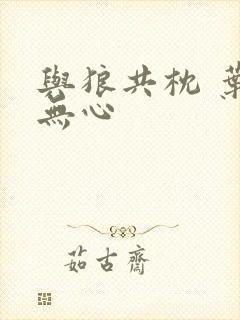 與狼共枕 葉
無心
茹古齋